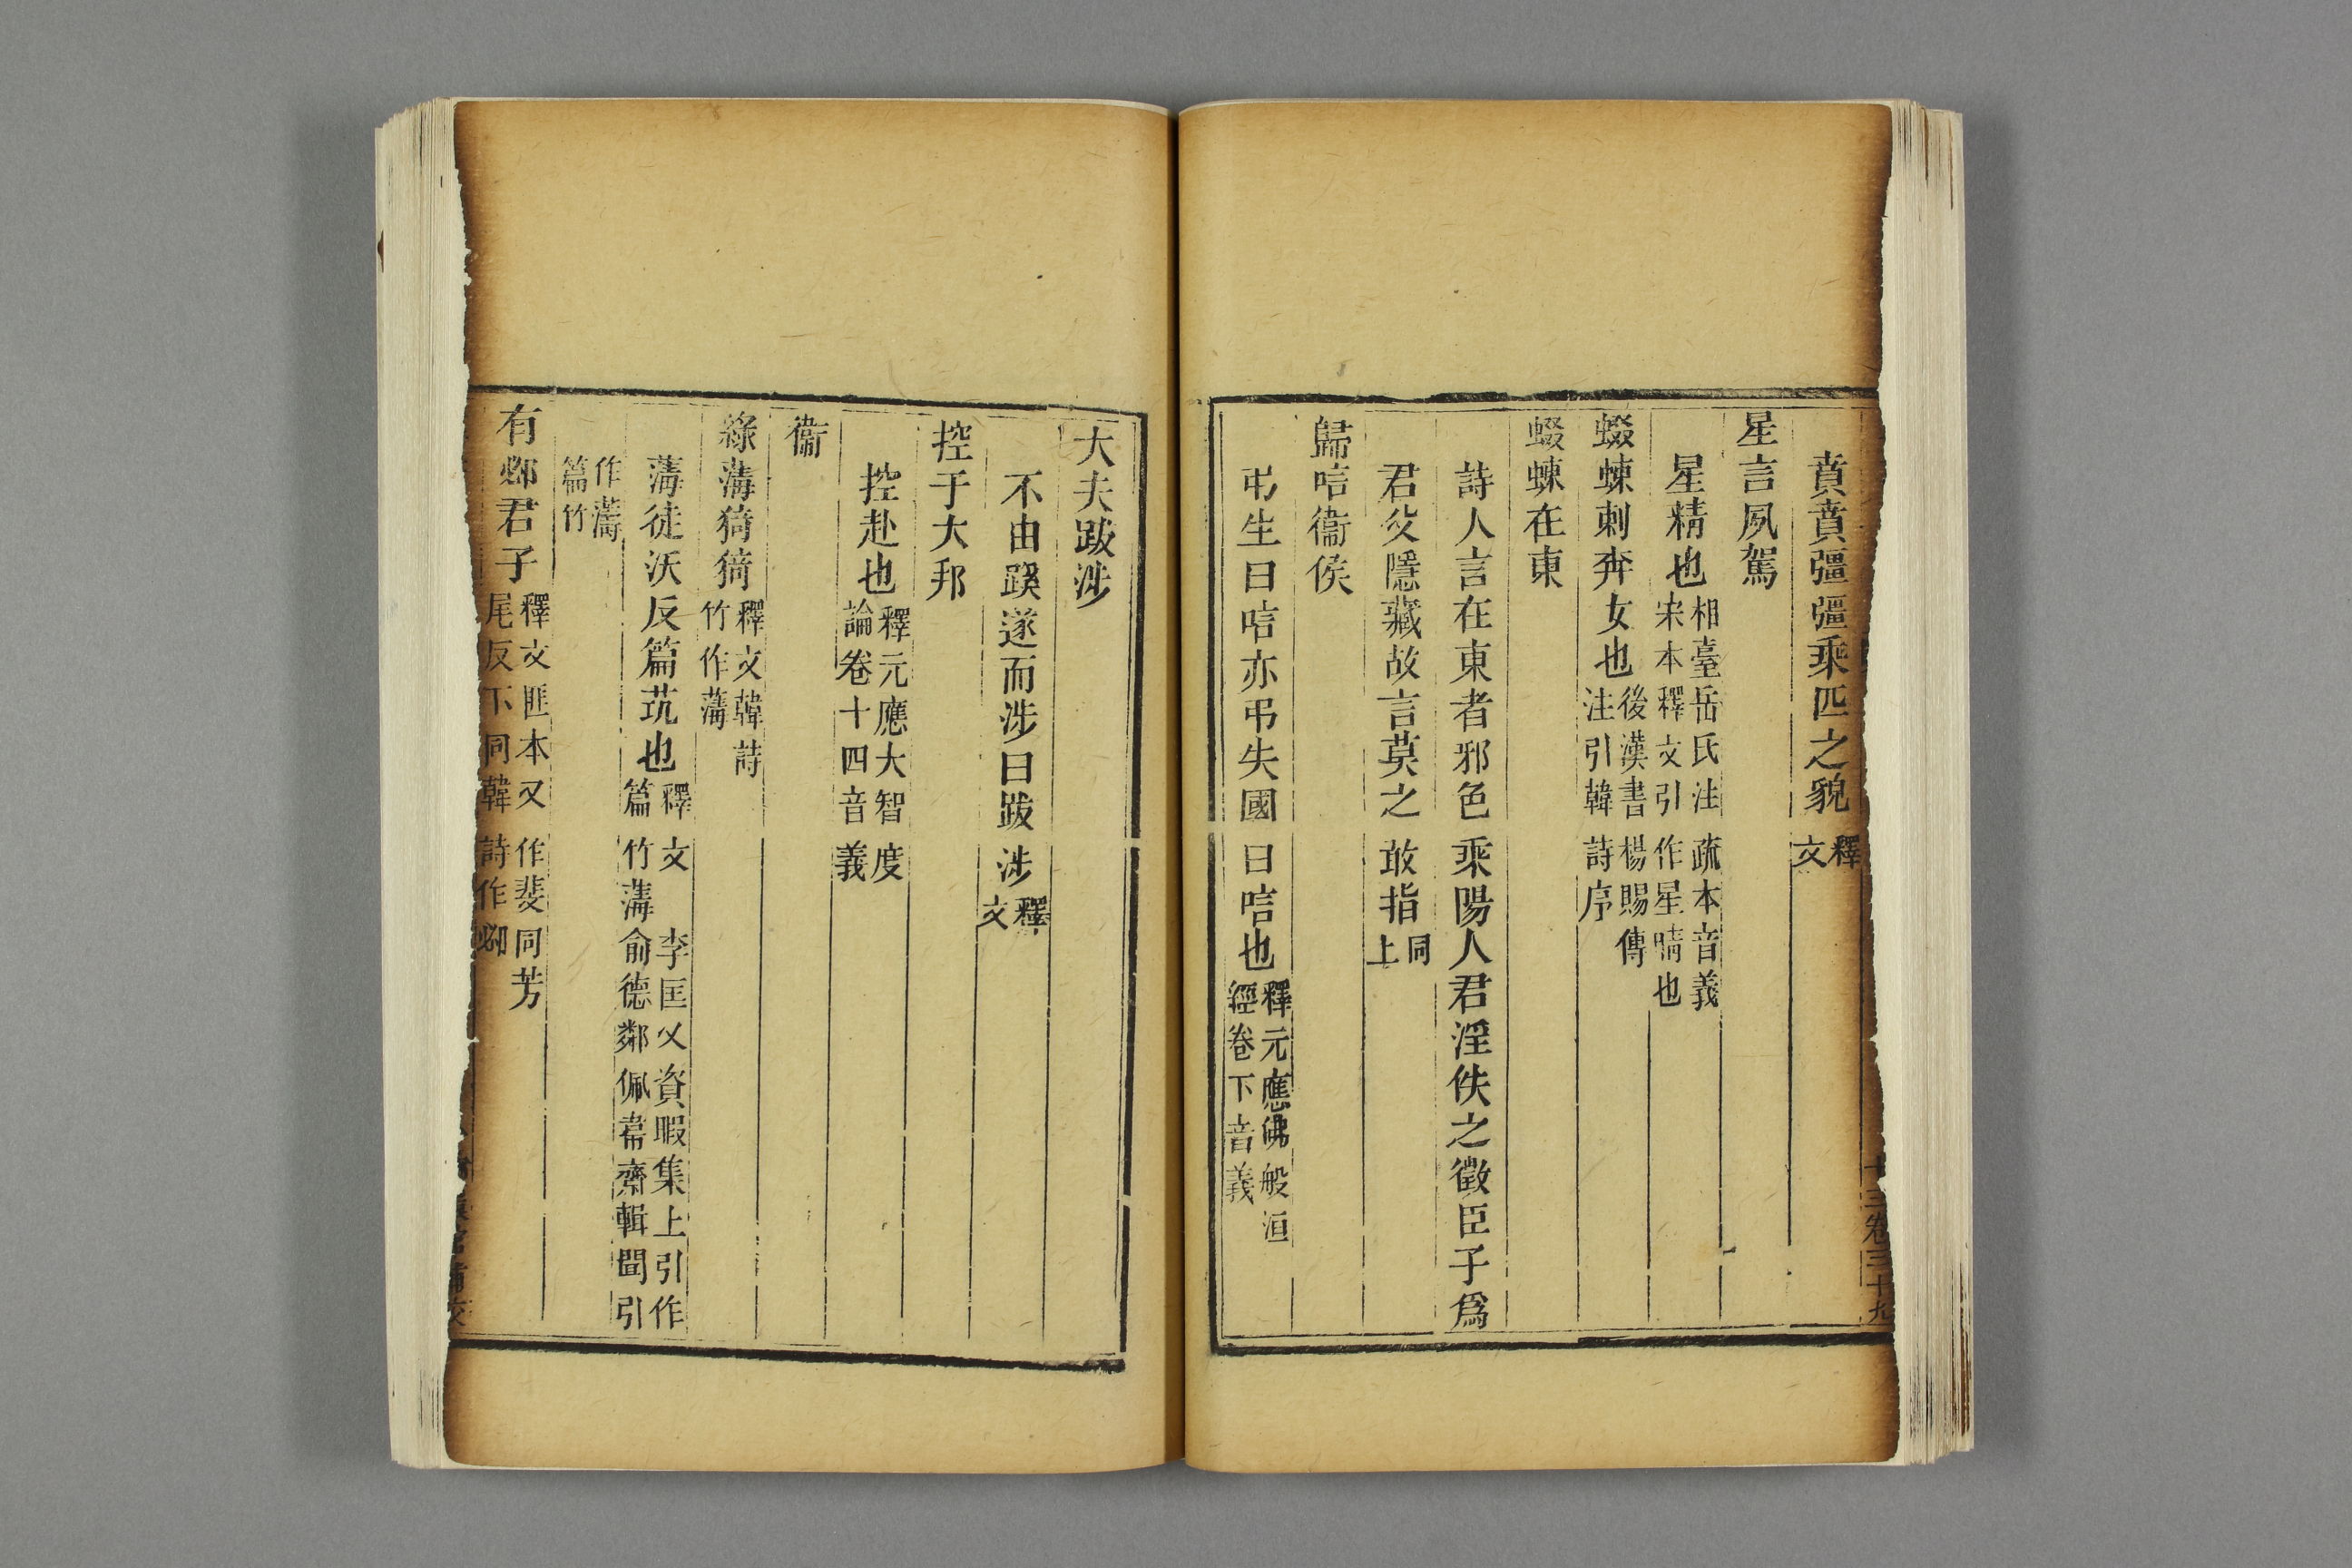 賁賁彊彊乘匹之貌釋文
星言夙駕
星精也相臺岳氏注疏本音義宋本釋文引作星晴也
蝃蝀刺奔女也後漢書楊賜傳注引韓詩序
蝃蝀在東
詩人言在東者邪色乘陽人君淫佚之徵臣子爲
君父隱藏故言莫之敢指同上
歸唁衞侯
弔生曰唁亦弔失國曰唁也釋元應佛般洹經卷下音義
十三卷三十九
大夫跋涉
不由蹊遂而涉曰跋涉釋文
控于大邦
控赴也釋元應大智度論卷十四音義
衞
綠薄猗猗釋文韓詩竹作薄
薄徒沃反篇茿也釋文 李匡乂資暇集上引作篇竹薄俞德鄰佩韋齋輯聞引
作薄篇竹
有邲君子釋文匪本又作斐同芳尾反下同韓詩作邲